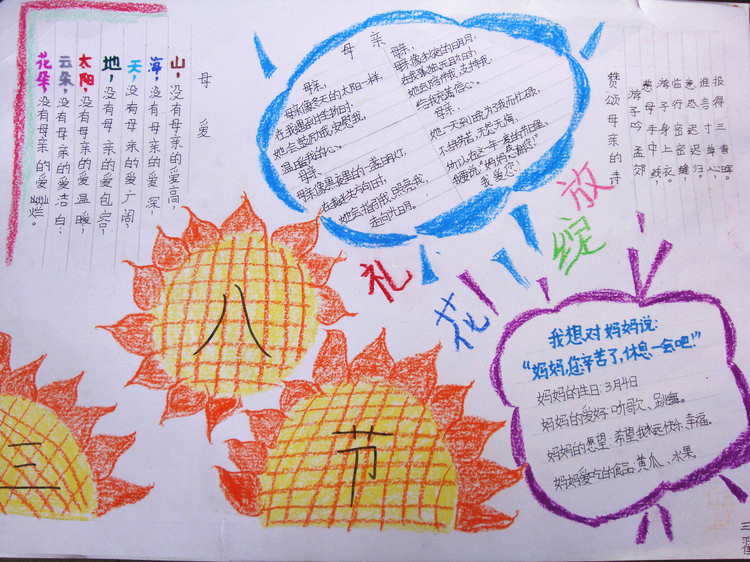 母爱
山，没有母亲的爱高，
海，没有母亲的爱深，
天，没有母亲的爱广阔，
地，没有母亲的爱包容；
太阳，没有母亲的爱温暖，
云朵，没有母亲的爱洁白；
花朵，没有母亲的爱灿烂。
母亲
母亲，
母亲像冬天的太阳一样，
在我遇到挫折时，
她会鼓励我，安慰我，
温暖我的心。
母亲，
母亲像黑夜里的一盏明灯，
在我迷失方向时，
她会指引我，照亮我，
走向光明。
母亲，
母亲像皎洁的明月，
在我孤独无助时，
她会陪伴我，支持我，
给我信心。
母亲，
她一天到晚为了我而忙碌，
不怕辛苦，无怨无悔，
所以，在这一年一度的节日里，
我要说："妈妈，您辛苦了！
我爱您！"
赞颂母亲的诗
游子吟 孟郊
慈母手中线，
游子身上衣。
临行密密缝，
意恐迟迟归。
谁言寸草心，
报得三春晖。
礼花绽放
三
八
节
我想对妈妈说：
"妈妈，您辛苦了，休息一会吧！"
妈妈的生日：3月4日
妈妈的爱好：听歌、跳舞。
妈妈的愿望：希望我快乐、幸福。
妈妈爱吃的食品：黄瓜、水果
三